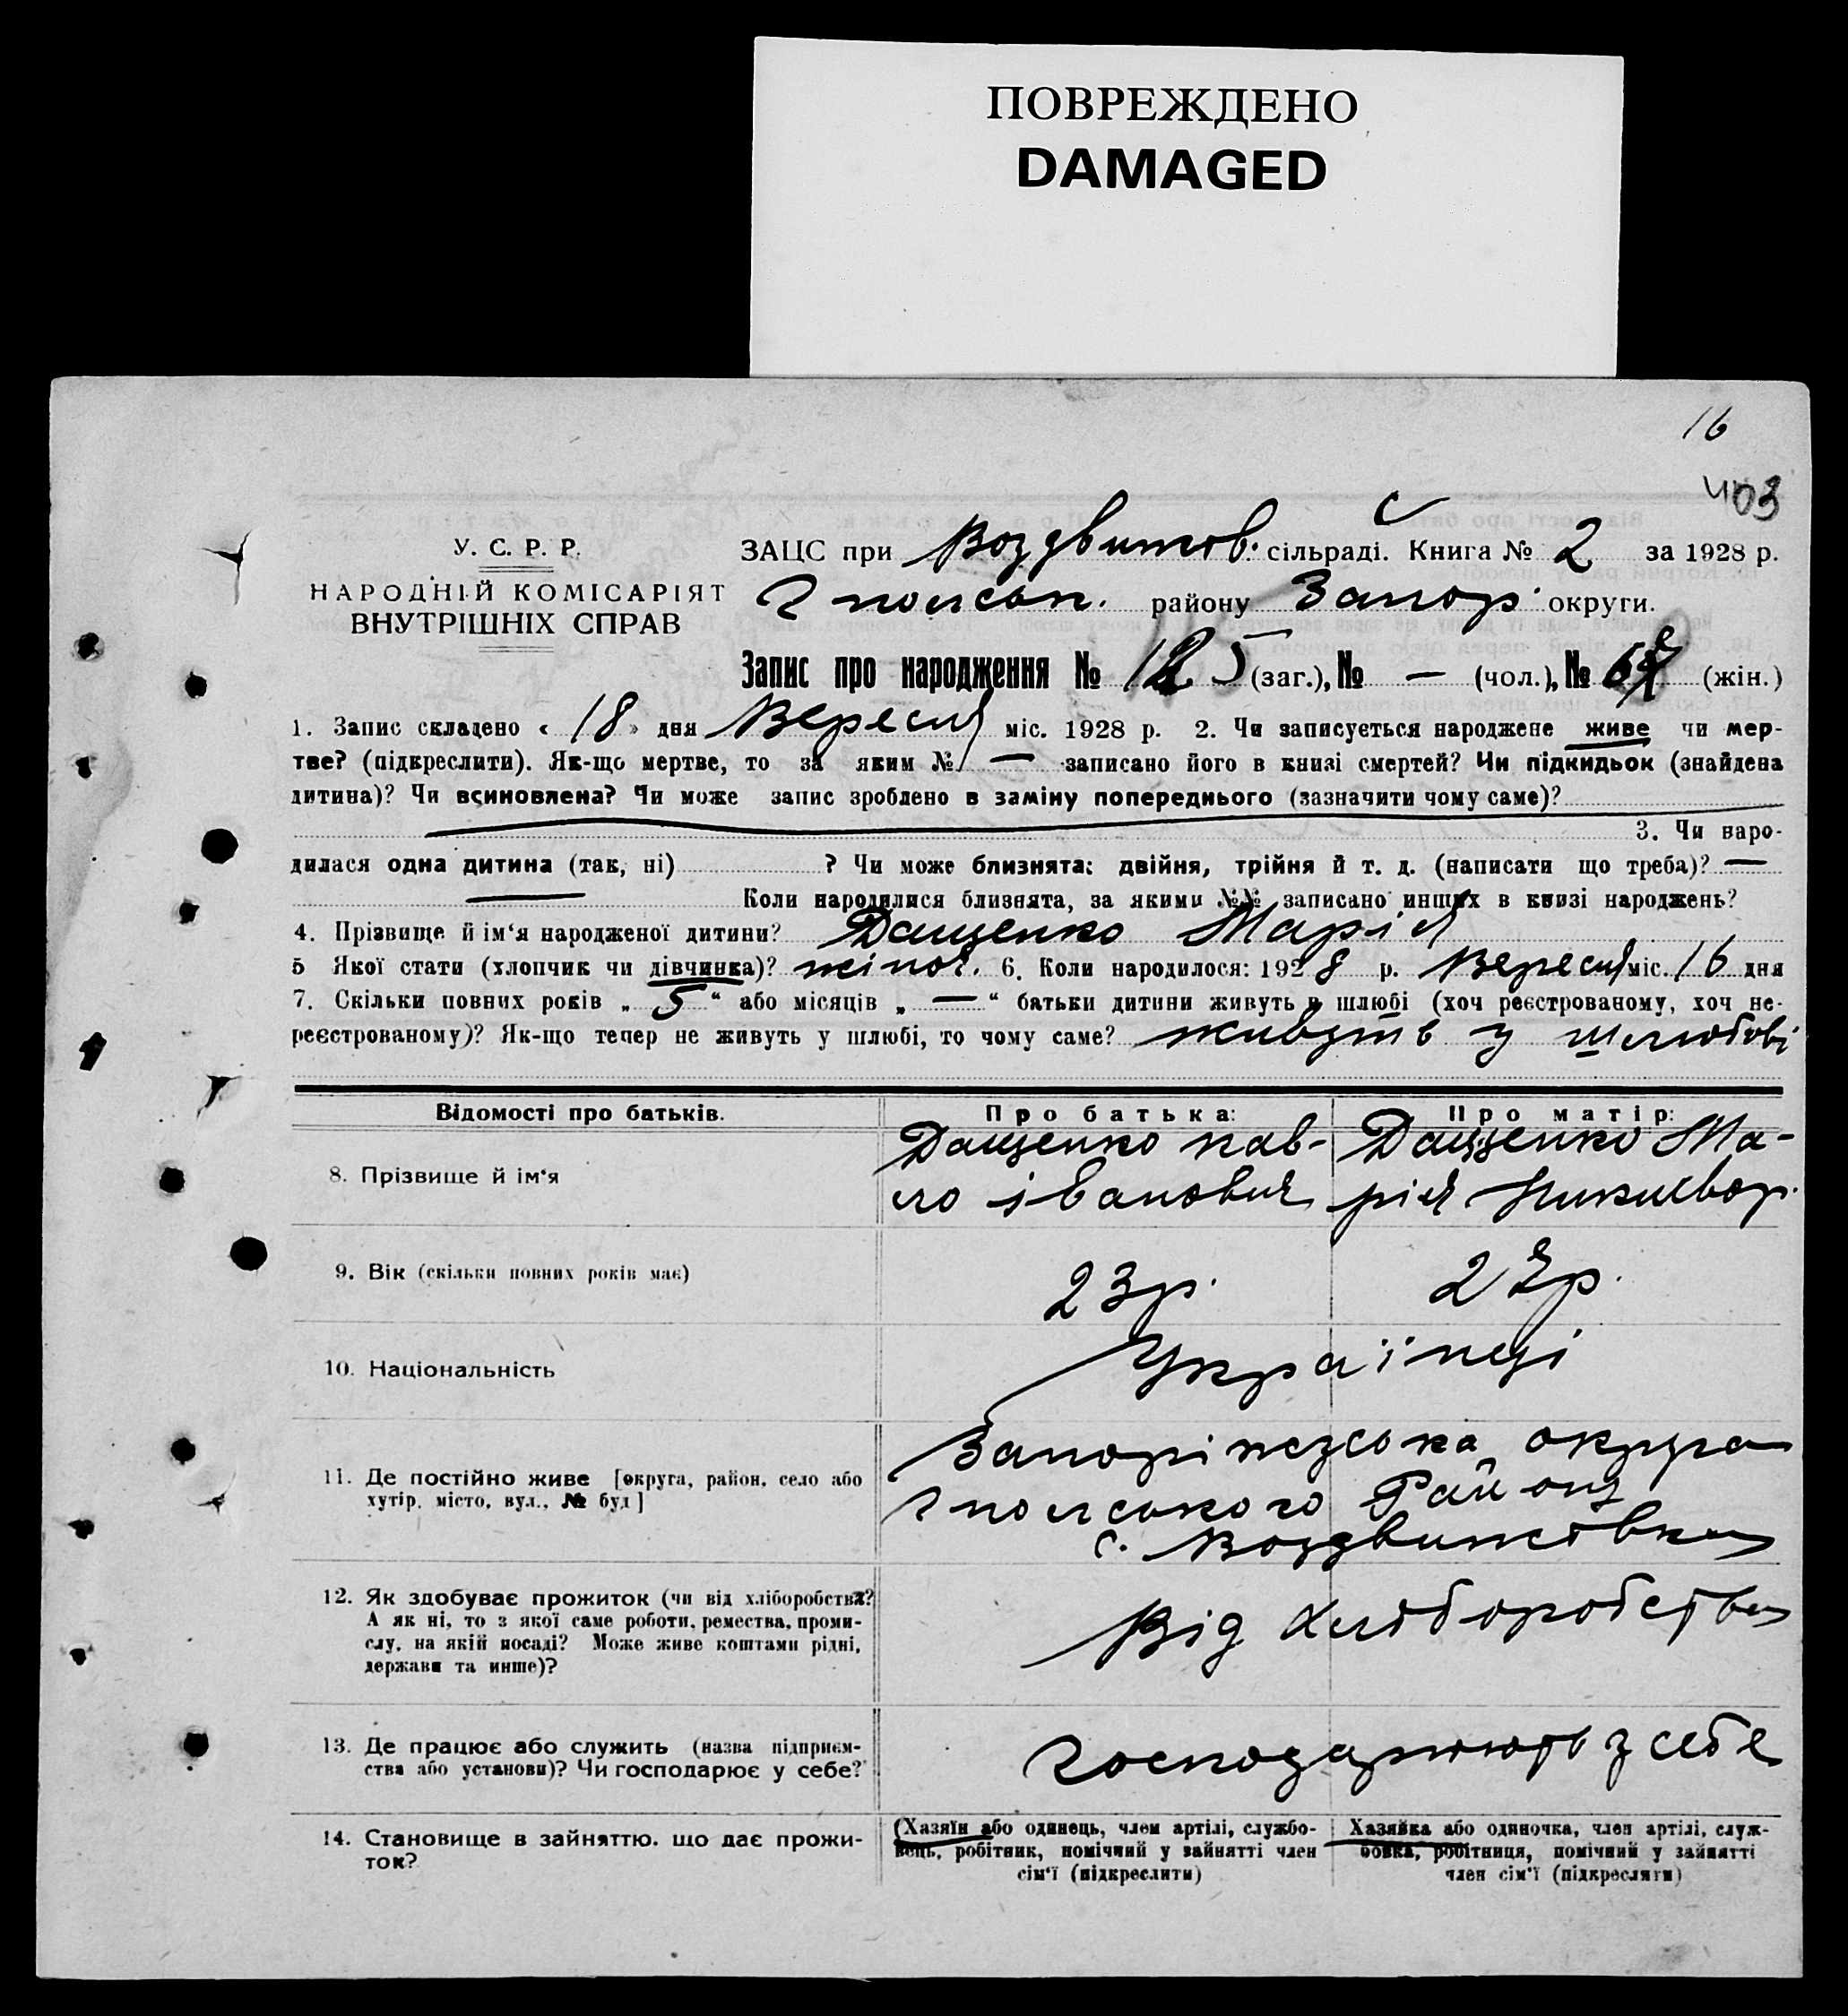 ПОВРЕЖДЕНО
DAMAGED
16
403
У. С. Р. Р.
НАРОДНІЙ КОМІСАРІЯТ
ВНУТРІШНІХ СПРАВ
ЗАЦС при Воздвижів. сільраді. Книга № 2 за 1928 р.
Гполськ. району Запор. округи.
Запис про народження № 125 (заг.), № — (чол.), № 67 (жін.)
1. Запис складено « 18 » дня Вересня міс. 1928 р. 2. Чи записується народжене живе чи мер-
тве? (підкреслити). Як-що мертве, то за яким № — записано його в книзі смертей? Чи підкидьок (знайдена
дитина)? Чи всиновлена? Чи може запис зроблено в заміну попереднього (зазначити чому саме)?
3. Чи наро-
дилася одна дитина (так, ні) ? Чи може близнята: двійня, трійня й т. д. (написати що треба)? —
— Коли народилися близнята, за якими №№ записано инших в книзі народжень?
4. Прізвище й ім‘я народженої дитини? Дащенко Марія
5 Якої стати (хлопчик чи дівчинка)? жіноч. 6. Коли народилося: 1928 р. Вересня міс. 16 дня
7. Скільки повних років „ 5 “ або місяців „ — “ батьки дитини живуть в шлюбі (хоч реєстрованому, хоч не-
реєстрованому)? Як-що тепер не живуть у шлюбі, то чому саме? живуть у шлюбові
Відомості про батьків. Про батька: Про матір:
8. Прізвище й ім‘я
Дащенко пав-
ло іванович
Дащенко Ма-
рія Никифор.
9. Вік (скільки повних років має) 23р. 22р.
10. Національність Українці
11. Де постійно живе [округа, район, село або
хутір, місто, вул., № буд]
Запоріжзська округа
Гполського Району
с. Воздвижівка
12. Як здобуває прожиток (чи від хліборобства?
А як ні, то з якої саме роботи, ремества, проми-
слу, на якій посаді? Може живе коштами рідні,
держави та инше)?
Від хліборобства
13. Де працює або служить (назва підприєм-
ства або установи)? Чи господарює у себе?
господарюють у себе
14. Становище в зайняттю. що дає прожи-
ток?
(Хазяїн або одинець, член артілі, службо-
вець, робітник, помічний у зайнятті член
сім‘ї (підкреслити)
Хазяйка або одиночка, член артілі, служ-
бовка, робітниця, помічний у зайнятті
член сім‘ї (підкреслити)